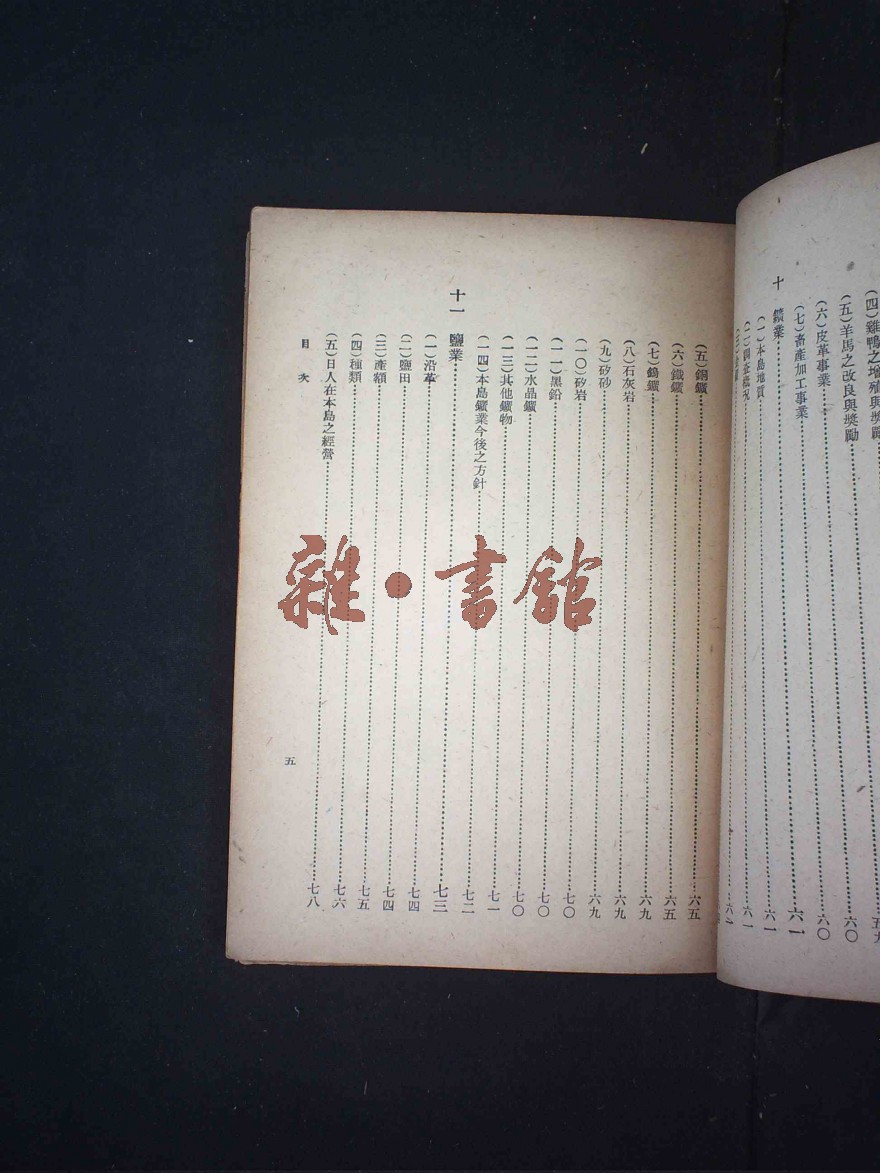 (四)雞鴨之增殖與獎勵
(五)羊馬之改良與獎勵……五九
(六)皮革事業……六〇
(七)畜產加工事業……六〇
十 鑛業……六一
(一)本島地質……六一
(二)調查概況……六一
(三)……六二
(五)銅鑛……六五
(六)鐵鑛……六五
(七)鎢鑛……六九
(八)石灰岩……六九
(九)矽砂……六九
(一〇)矽岩……七〇
(一一)黑鉛……七〇
(一二)水晶鑛……七〇
(一三)其他鑛物……七一
(一四)本島鑛業今後之方針……七二
十一 鹽業……七三
(一)沿革……七四
(二)鹽田……七四
(三)產額……七五
(四)種類……七六
(五)日人在本島之經營……七八
目次
五
雜·書館